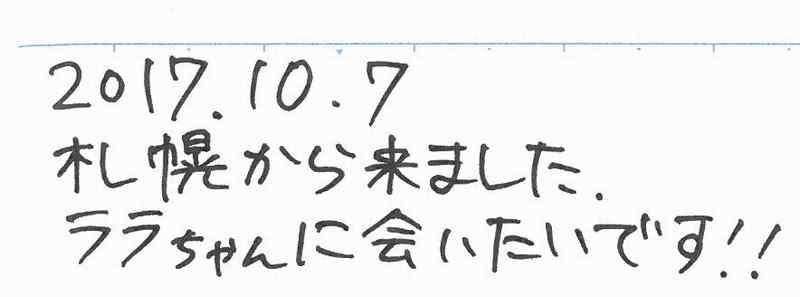 2017.10.7
札幌から来ました.
ララちゃんに会いたいです!!